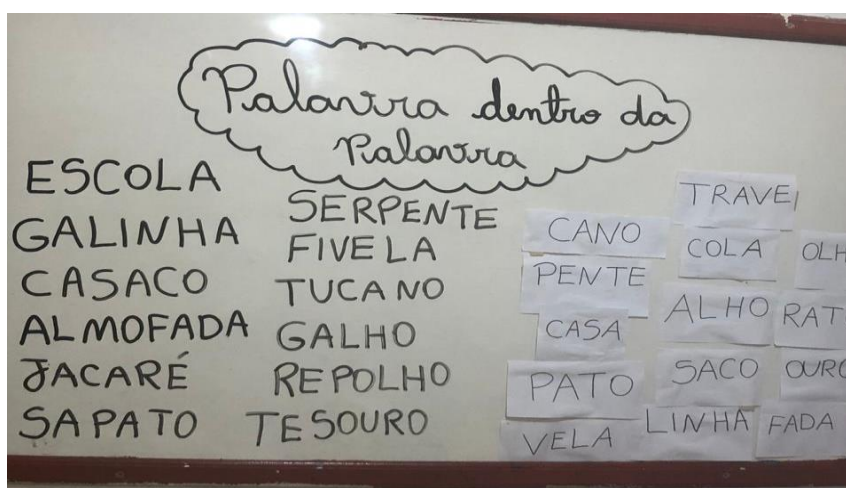 Palavra dentro da
Palavra
ESCOLA
GALINHA
CASACO
ALMOFADA
JACARÉ
SAPATO
SERPENTE
FIVELA
TUCANO
GALHO
REPOLHO
TESOURO
CANO
PENTE
CASA
PATO
VELA
TRAVE
COLA
ALHO
SACO
LINHA
OLH
RAT
OURO
FADA